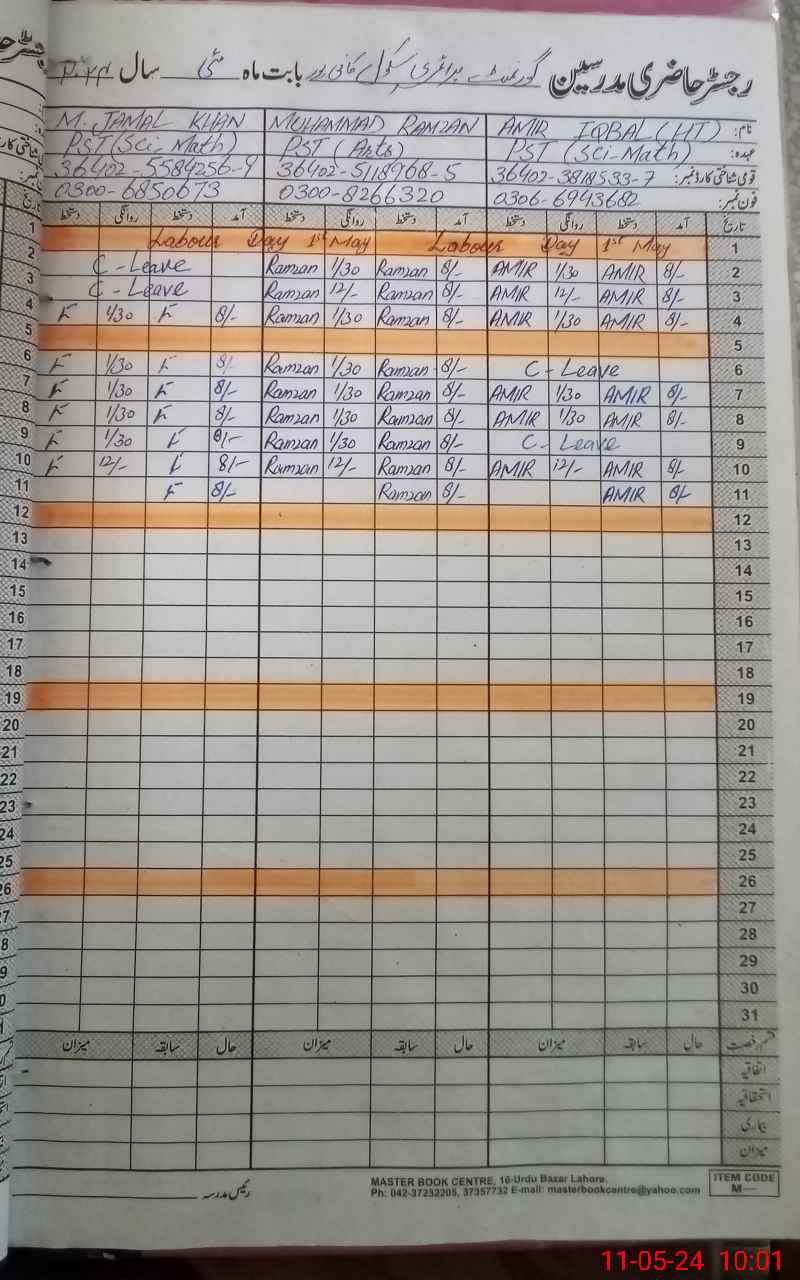 رجسٹر حاضری مدرسین گورنمنٹ پرائمری سکول بابت ماہ مئی سال ۲۰۲۴
نام: AMIR IQBAL (HT) MUHAMMAD RAMZAN M. JAMAL KHAN
عہدہ: PST (Sci-Math) PST (Arts) PST (Sci-Math)
قومی شناختی کارڈ نمبر: 36402-3818533-7 36402-5118968-5 36402-5584256-9
فون نمبر: 0306-6943682 0300-8266320 0300-6850673
تاریخ آمد دستخط روانگی دستخط آمد دستخط روانگی دستخط آمد دستخط روانگی دستخط تاریخ
1 Labour Day 1st May Labour Day 1st May 1
2 C-Leave Ramzan 1/30 Ramzan 8/- AMIR 1/30 AMIR 8/- 2
3 C-Leave Ramzan 12/- Ramzan 8/- AMIR 12/- AMIR 8/- 3
4 1/30 8/- Ramzan 1/30 Ramzan 8/- AMIR 1/30 AMIR 8/- 4
5 5
6 1/30 8/- Ramzan 1/30 Ramzan 8/- C-Leave 6
7 1/30 8/- Ramzan 1/30 Ramzan 8/- AMIR 1/30 AMIR 8/- 7
8 1/30 8/- Ramzan 1/30 Ramzan 8/- AMIR 1/30 AMIR 8/- 8
9 1/30 8/- Ramzan 1/30 Ramzan 8/- C-Leave 9
10 12/- 8/- Ramzan 12/- Ramzan 8/- AMIR 12/- AMIR 8/- 10
11 8/- Ramzan 8/- AMIR 8/- 11
12 12
13 13
14 14
15 15
16 16
17 17
18 18
19 19
20 20
21 21
22 22
23 23
24 24
25 25
26 26
27 27
28 28
29 29
30 30
31 31
قسم رخصت حال سابقہ میزان حال سابقہ میزان حال سابقہ میزان
اتفاقیہ
استحقاقیہ
بیماری
میزان
رئیس مدرسہ
MASTER BOOK CENTRE, 16-Urdu Bazar Lahore.
Ph: 042-37232205, 37357732 E-mail: masterbookcentre@yahoo.com
ITEM CODE
M—
11-05-24 10:01